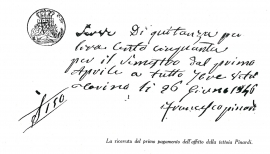 Serve Di quitanza per
lire Cento cinquanta
per il Semestre dal primo
Aprile a tutto
Torino li 26 Giuno 1846
£ 150
Francesco Pinardi
La ricevuta del primo pagamento dell'affitto della tettoia Pinardi.